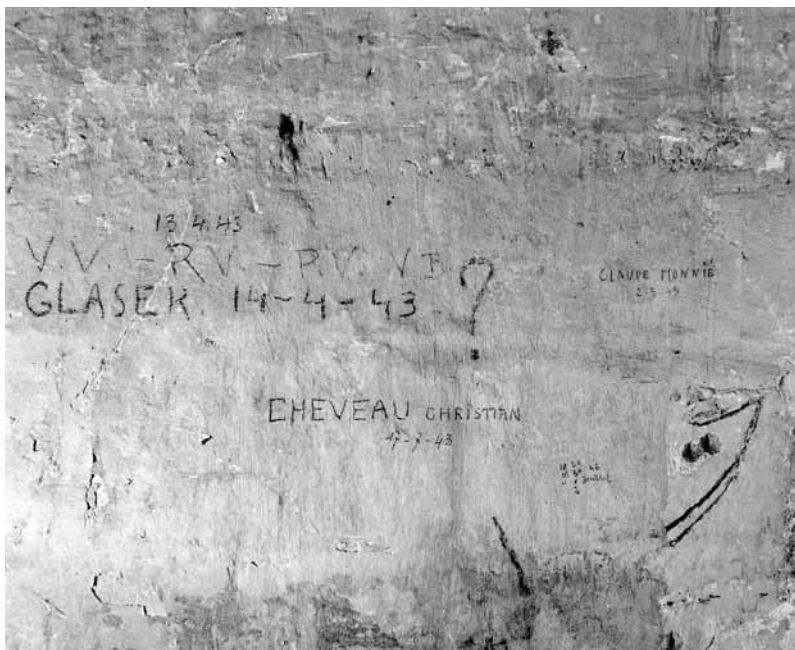 13.4.43
V.V. – R V. – P.V. V B.
GLASER. 14-4-43 ?
CLAUDE MONNIÉ
CHEVEAU CHRISTIAN
17-7-43
43
Juillet